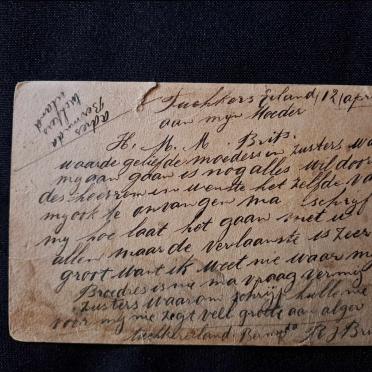 adres
Bermuda
tuckers
iland
Tuchkers Eiland 12 apr
aan myn Moeder
H. M. M. Brits.
waarde geliefde moeder en zusters wa
my aan gaan is nog alles wil door
des heeren en wenste het zelfde va
my ook te onvangen ma schryf
my hoe laat het gaan met u
allen maar de verlaanste is zeer
groot want ik weet nie waar m
Broedres is nie ma vraag vermy
zusters waarom schryf hulle nie
voor my nie zegt veel groete aan algar
tuchkers eiland. Bermuda R J Bri